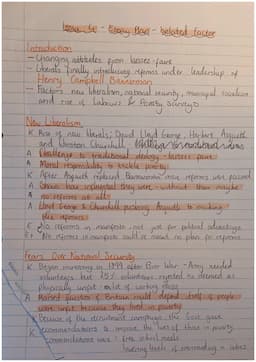 Essay Plan - Isolated factor
Introduction
- Changing attitudes from laissez-faire
- Liberals finally introducing reforms under leadership of
Henry Campbell Bannerman
- Factors: new liberalism, national security, municipal socialism
and rise of Labour & Poverty Surveys
New Liberalism
K Rise of new liberals; David Lloyd George, Herbert Asquith
and Winston Churchill
A Challenge to traditional ideology - laissez faire
A Moral responsibility to tackle poverty
K After Asquith replaced Bannerman more reforms were passed
A Shows how influential they were - without them maybe
no reforms at all
A Lloyd George & Churchill pushing Asquith to
reforms
E No reforms in manifesto - not just for political advantage
E+ No reforms in manifesto could so meant no plan for reforms
Fears Over National Security
K Began in 1899 after Boer War - Army needed
volunteers but 25% of volunteers rejected so deemed as
physically unfit
A Raised fears of Britain could defend itself if people
were unfit because they lived in poverty
K
recommendations to improve the lives of those in poverty.
recommendations were: free school meals